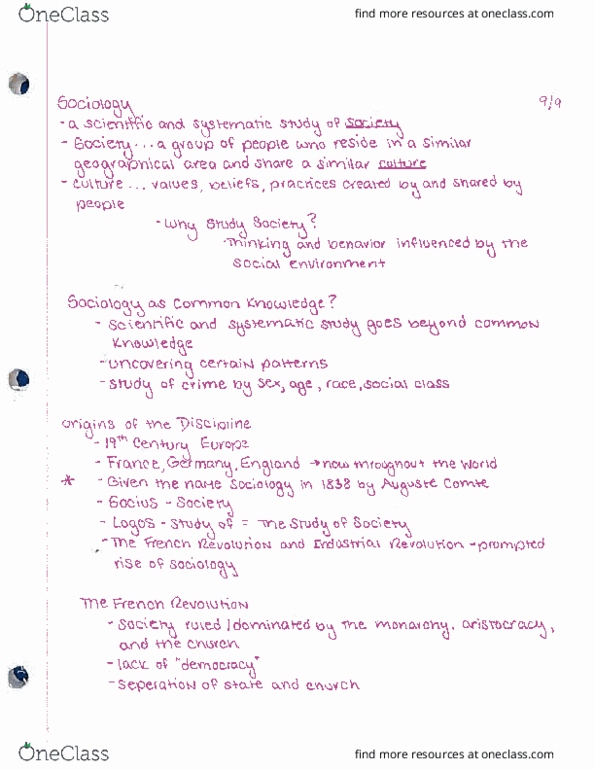 OneClass
find more resources at oneclass.com
Sociology 9/9
- a scientific and systematic study of society
- Society... a group of people who reside in a similar
geographical area and share a similar culture
- culture... values, beliefs, practices created by and shared by
people
- Why Study Society?
- Thinking and behavior influenced by the
social environment
Sociology as Common Knowledge?
- scientific and systematic study goes beyond common
knowledge
- uncovering certain patterns
- study of crime by sex, age, race, social class
Origins of the Discipline
- 19th Century Europe
- France, Germany, England → now throughout the world
* - Given the name Sociology in 1838 by Auguste Comte
- Socius - Society
- Logos - study of = The Study of Society
- The French Revolution and Industrial Revolution - prompted
rise of sociology
The French Revolution
- Society ruled / dominated by the monarchy, aristocracy,
and the church
- lack of "democracy"
- seperation of state and church
OneClass
find more resources at oneclass.com